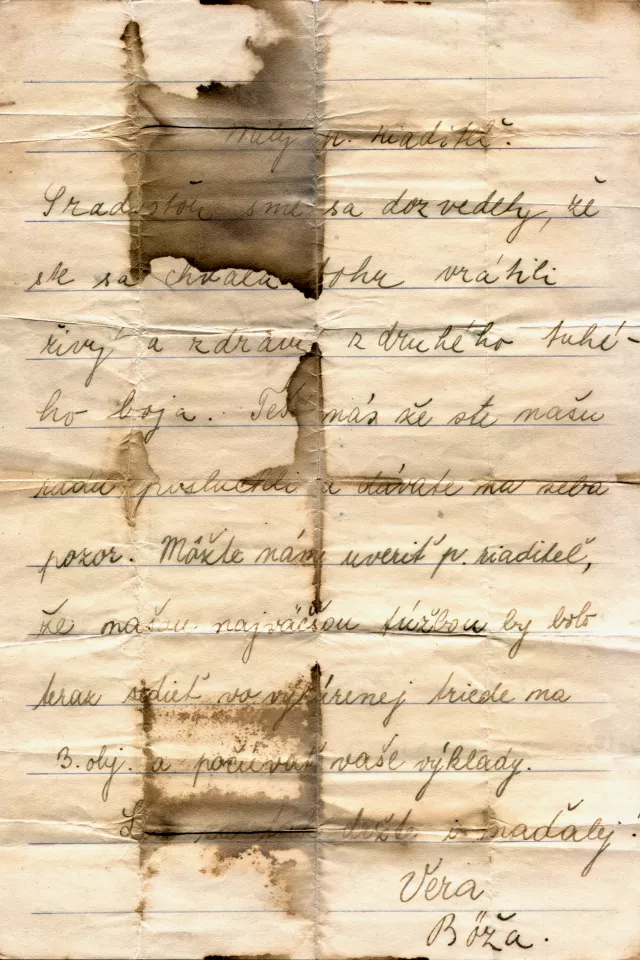 Milý p. riaditeľ.
S radosťou sme sa dozvedely, že
ste sa chvála bohu vrátili
živý a zdravý z druhého tuhé-
ho boja. Teší nás že ste našu
radu posluchli a dávate na seba
pozor. Môžte nám uveriť p. riaditeľ,
že našou najväčšou túžbou by bolo
teraz sedieť vo vykúrenej triede na
3. obj. a počúvať vaše výklady.
držte i naďalej!
Věra
Böža.